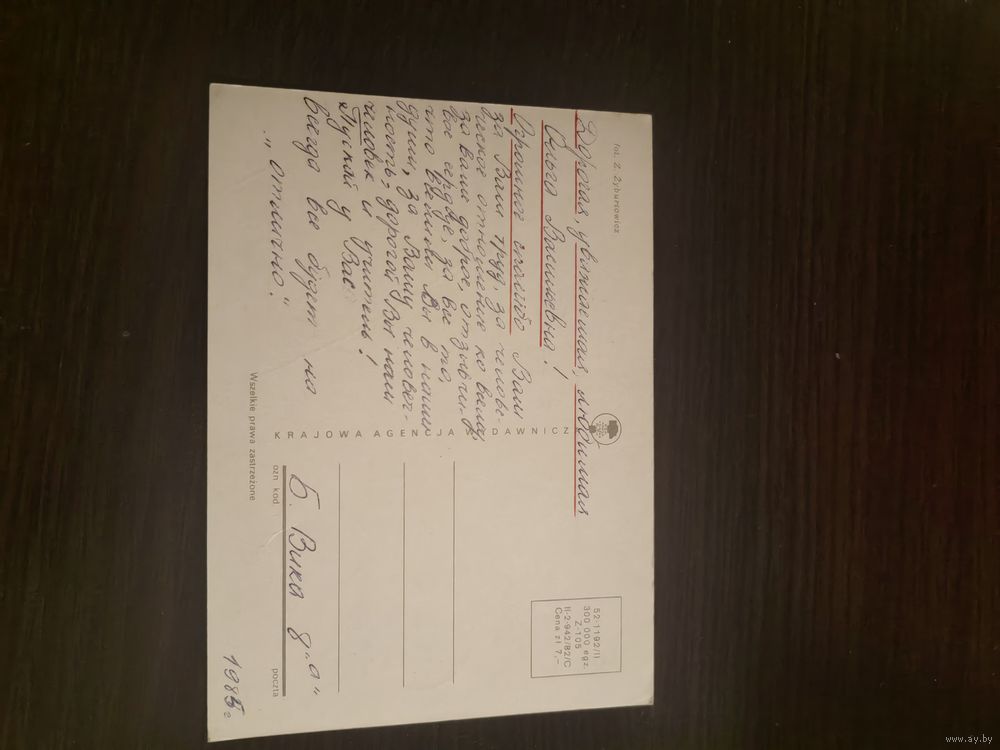 fot. Z. Żyburtowicz
Дорогая, уважаемая, любимая
Ольга Васильевна!
Огромное спасибо Вам
за Ваш труд, за челове-
ческое отношение ко всему,
за ваше доброе, отзывчи-
вое сердце, за все то,
что вложили Вы в наши
души, за Вашу человеч-
ность, дорогой Вы наш
человек и учитель!
Пускай у Вас
всегда все будет на
„отлично".
KRAJOWA AGENCJA WYDAWNICZA
Wszelkie prawa zastrzeżone
52-1192/II
300 000 egz.
Z-105
II-2-942/82/C
Cena zł 7,—
Б. Вика 8 „а"
ozn. kod.
poczta
1985 г
www.ay.by